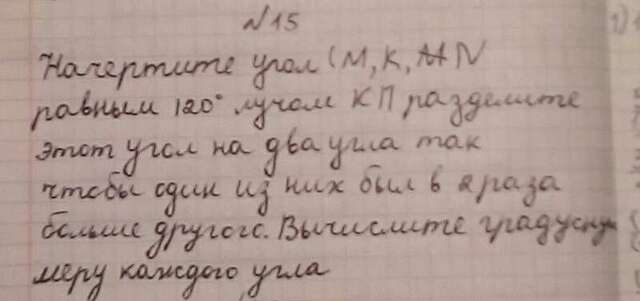 №15
Начертите угол (М, К, N
равным 120° лучом КП разделите
этот угол на два угла так
чтобы один из них был в 2 раза
больше другого. Вычислите градусную
меру каждого угла